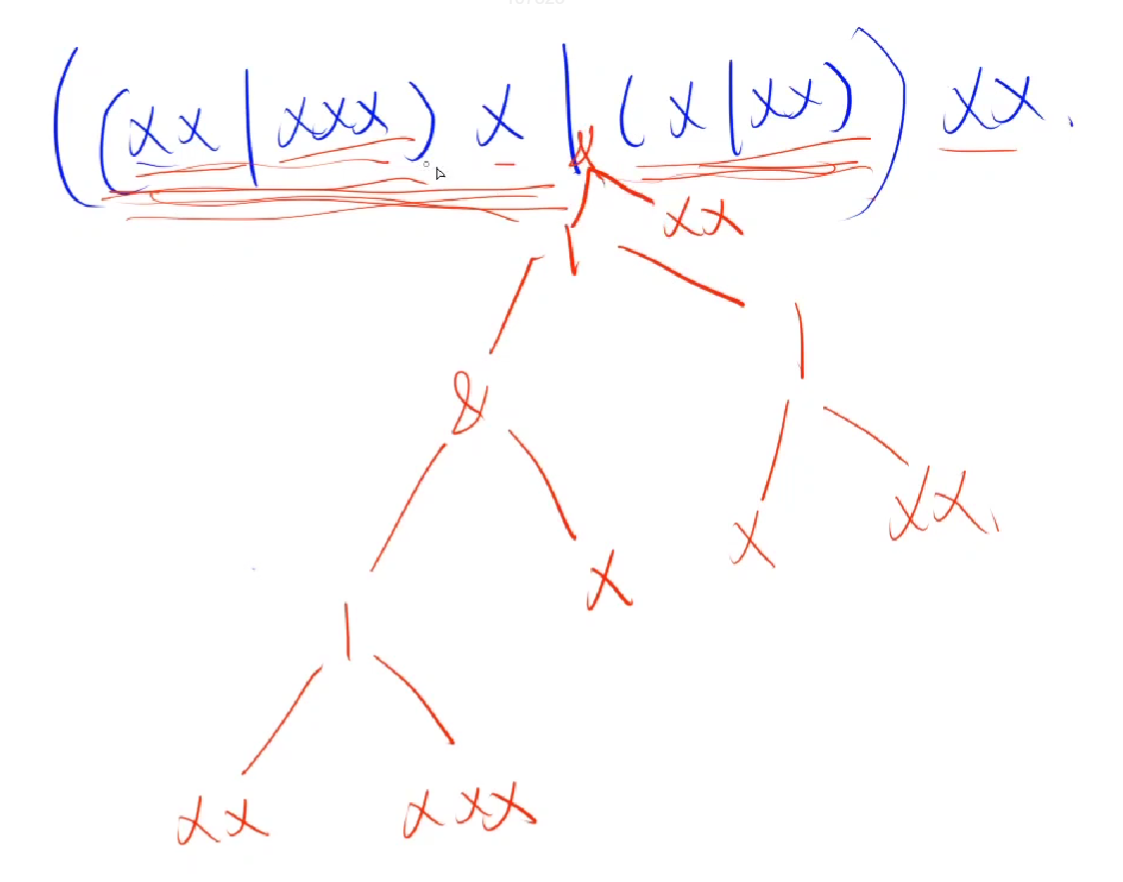 ((xx|xxx)x|(x|xx))xx.
& xx
|
|
& 
x xx
x
|
xx xxx